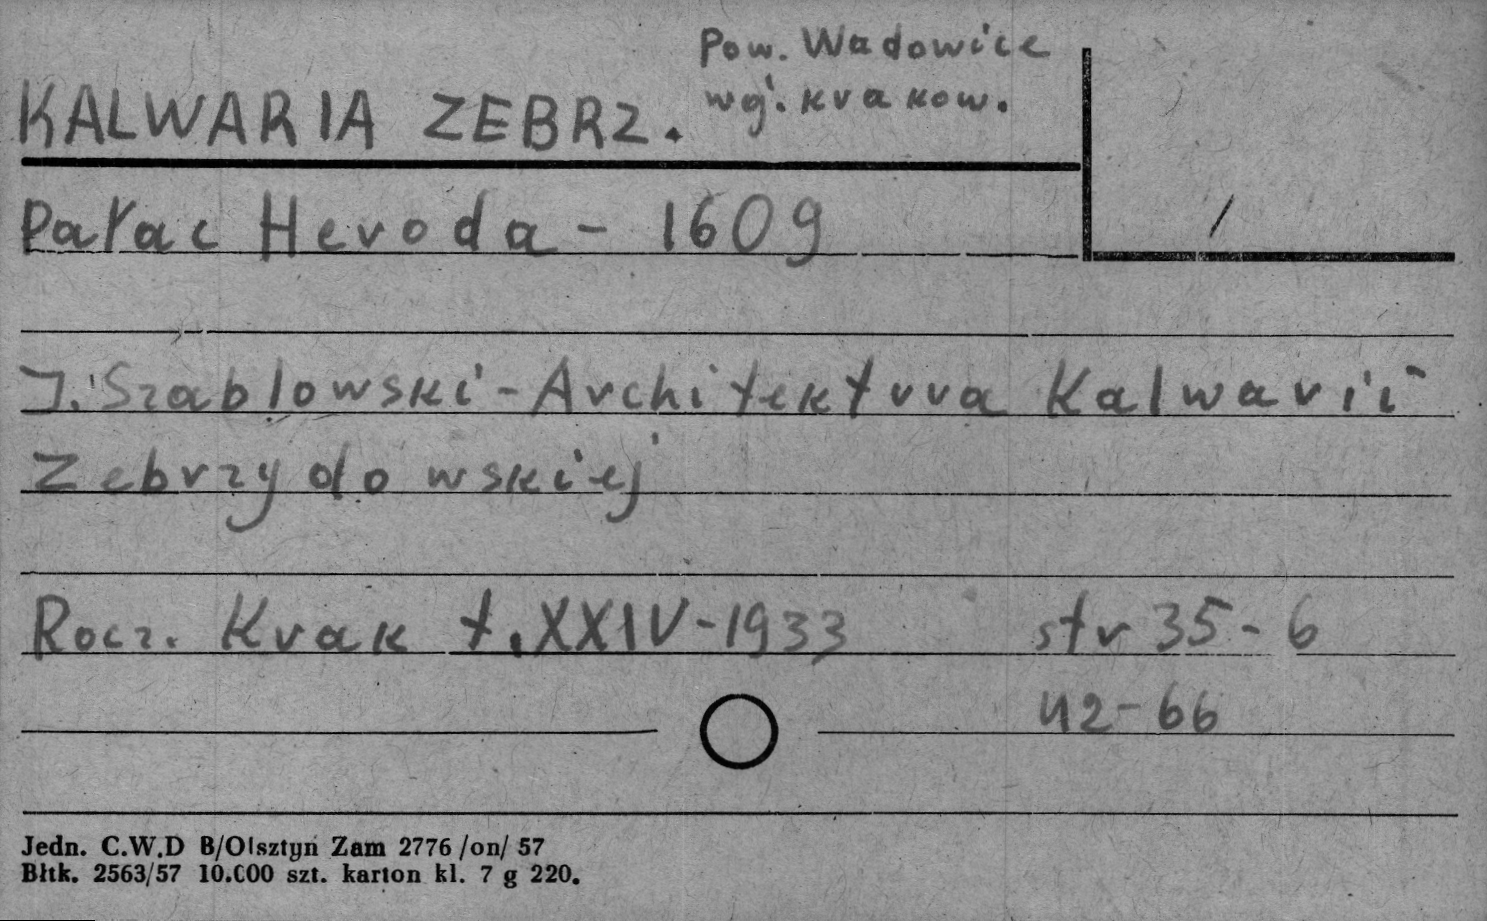 Pow. Wadowice
KALWARIA ZEBRZ. woj. krakow.
Pałac Heroda - 1609
J. Szablowski - Architektura Kalwarii
Zebrzydowskiej
Rocz. Krak t. XXIV - 1933 str 35 - 6
42 - 66
Jedn. C.W.D B/Olsztyn Zam 2776 /on/ 57
Błtk. 2563/57 10.000 szt. karton kl. 7 g 220.